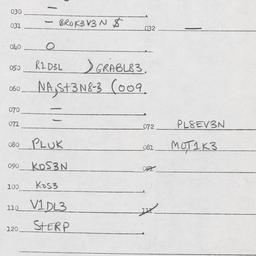 030 —
031 — BROK3V3N $ 032 —
040 O
050 R1D3L )GRABL83.
060 NA,S+3N8-3 (009.
070 —
071 — 072 PL8EV3N
080 PLUK 081 MO,T1K3
090 KOS3N
100 KOS3
110 V1DL3
120 S+ERP